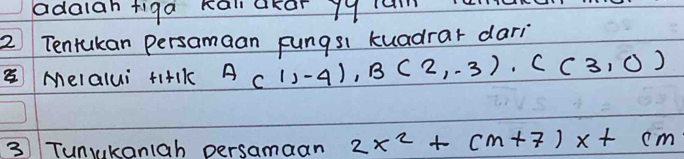 adalah tiga kali akar yg lain
2 Tentukan persamaan fungsi kuadrat dari
Melalui titik A (1,-4), B (2,-3). C (3,0)
3 Tunjukanlah persamaan 2x² + (m+7)x + (m